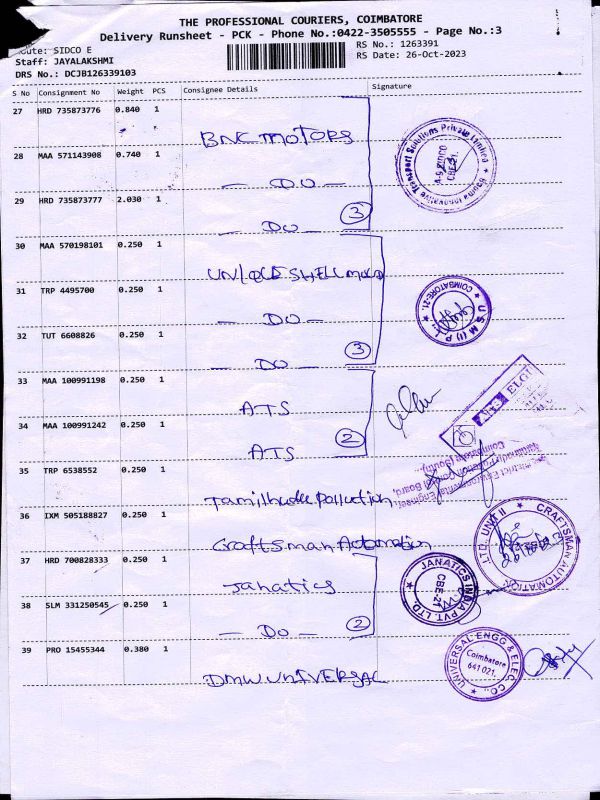 THE PROFESSIONAL COURIERS, COIMBATORE
Delivery Runsheet - PCK - Phone No.:0422-3505555 - Page No.:3
Route: SIDCO E
RS No.: 1263391
Staff: JAYALAKSHMI
RS Date: 26-Oct-2023
DRS No.: DCJB126339103
S No Consignment No Weight PCS Consignee Details Signature
27 HRD 735873776 0.840 1
BNC MOTORS
28 MAA 571143908 0.740 1
- DO -
29 HRD 735873777 2.030 1
- DO - 3
30 MAA 570198101 0.250 1
SHELL
31 TRP 4495700 0.250 1
- DO -
32 TUT 6608826 0.250 1
- DO - 3
33 MAA 100991198 0.250 1
ATS
34 MAA 100991242 0.250 1
ATS 2
35 TRP 6538552 0.250 1
Pollution
36 IXM 505188827 0.250 1
Craftsman Automation
37 HRD 700828333 0.250 1
Janatics
38 SLM 331250545 0.250 1
- DO - 2
39 PRO 15455344 0.380 1
DMW UNIVERSAL
Innovative Transport Solutions Private Limited
COIMBATORE-21.
U S M (I) P L
ATS ELGI
District Environmental Engineer,
Tamilnadu Pollution Control Board,
Coimbatore (South)
CRAFTSMAN AUTOMATION LTD. UNIT II
JANATICS INDIA PVT. LTD.
CBE-21
UNIVERSAL ENGG & ELEC. CO.,
Coimbatore
641 021.